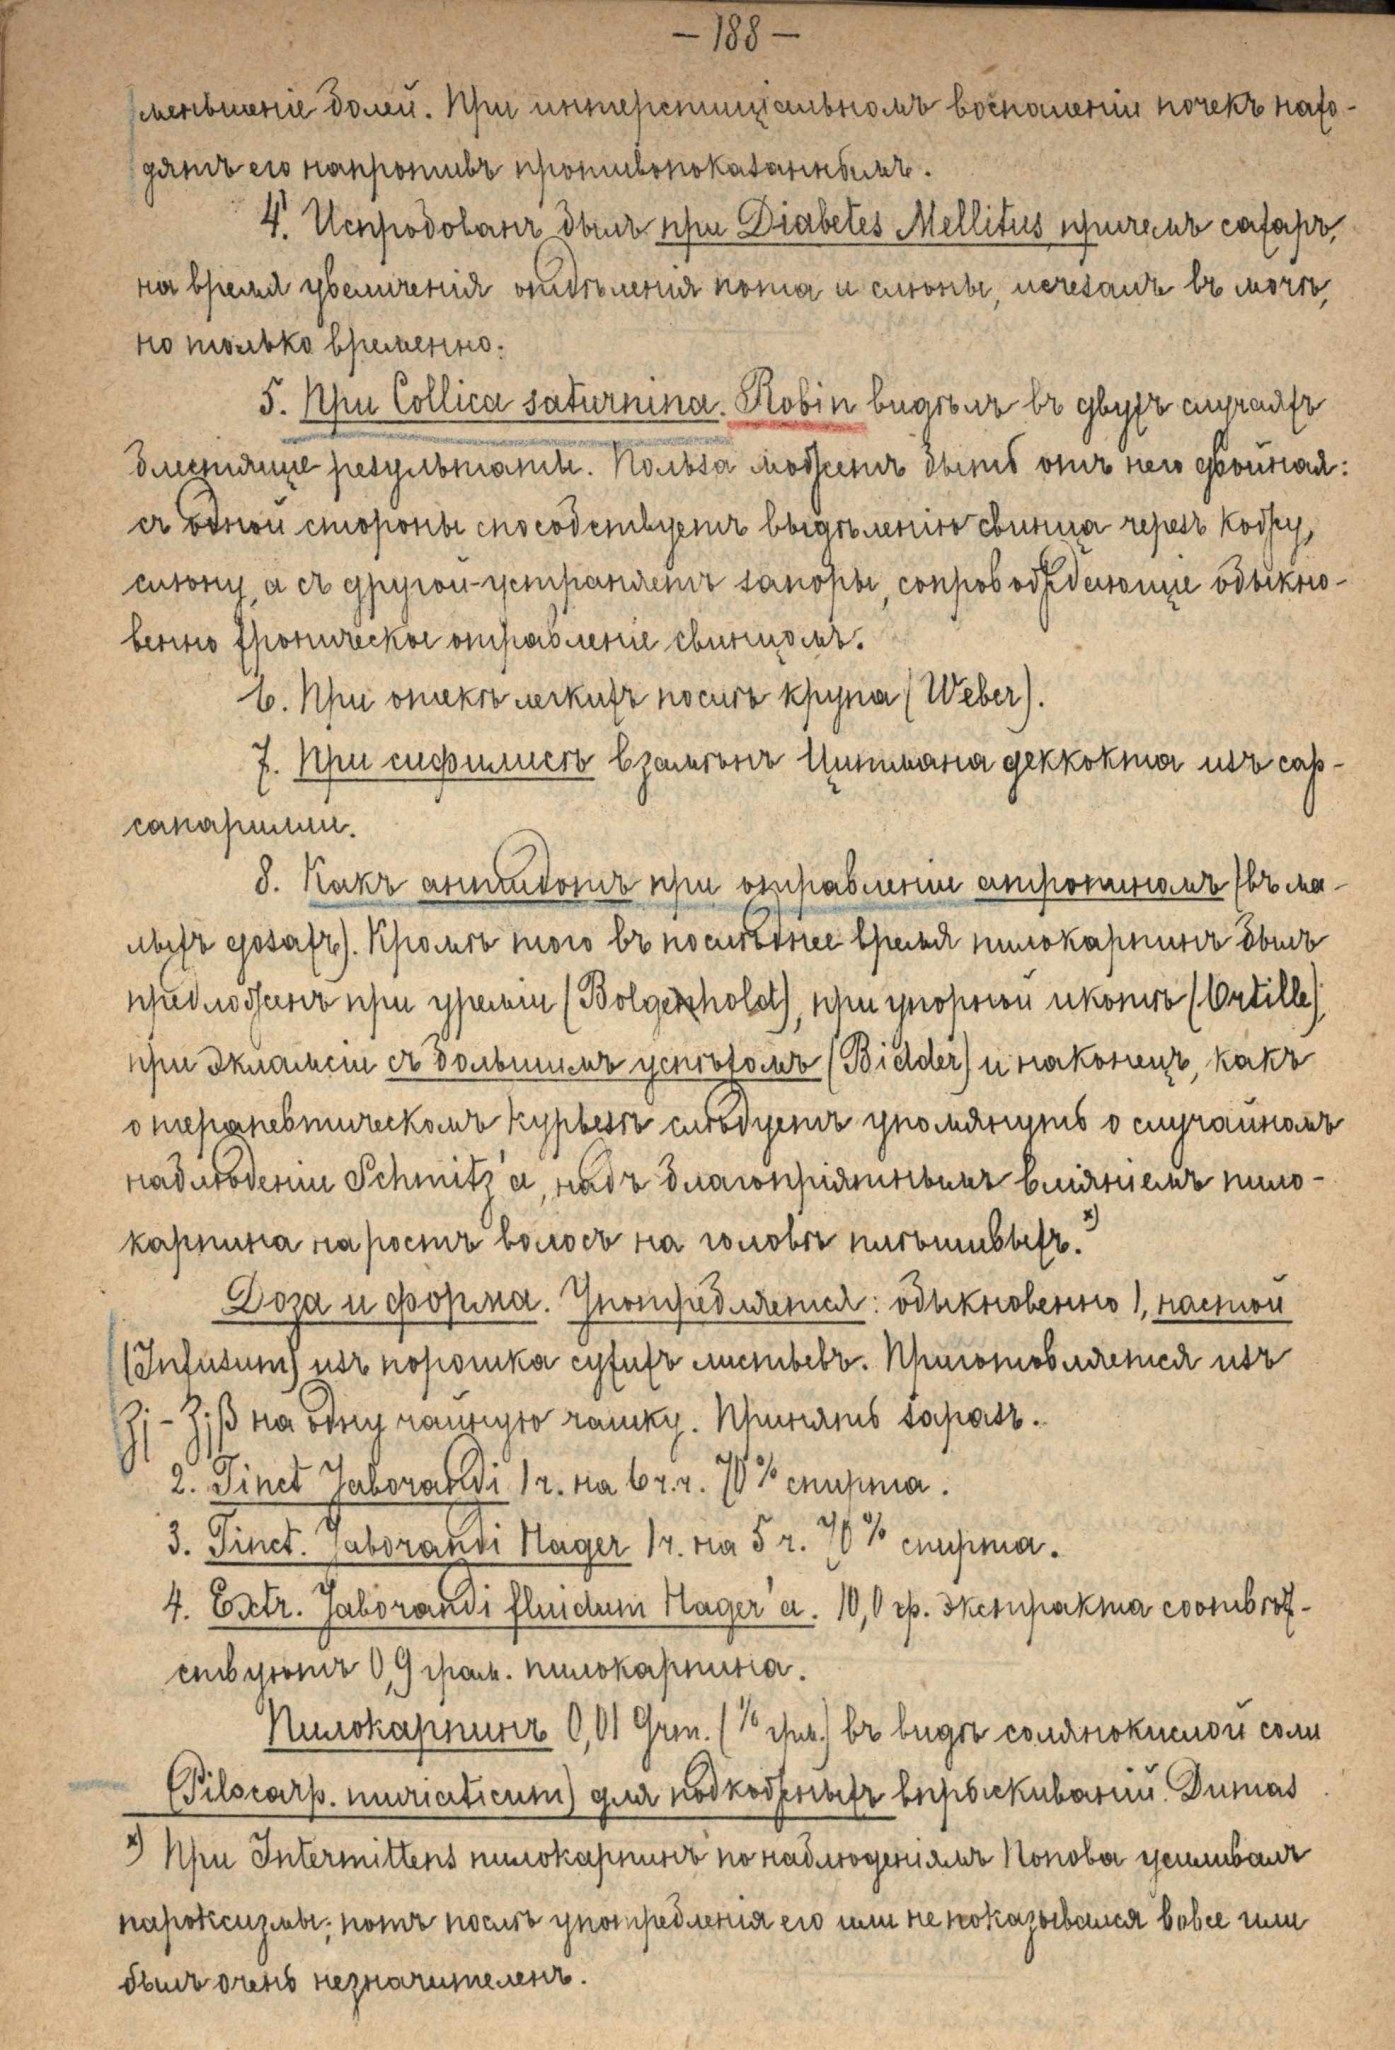 — 188 —
меньшеніе болей. При интерстиціальномъ воспаленіи почекъ нахо-
дятъ его напротивъ противопоказаннымъ.
4. Испробованъ былъ при Diabetes Mellitus, причемъ сахаръ,
на время увеличенія отдѣленія пота и слюны, исчезалъ въ мочѣ,
но только временно.
5. При Collica saturnina. Robin видѣлъ въ двухъ случаяхъ
блестящіе результаты. Польза можетъ быть отъ него двойная:
съ одной стороны способствуетъ выдѣленію свинца черезъ кожу,
слюну, а съ другой-устраняетъ запоры, сопровождающіе обыкно-
венно хроническое отравленіе свинцомъ.
6. При отекѣ легкихъ послѣ крупа (Weber).
7. При сифилисѣ взамѣнъ Цитмана деккокта изъ сар-
сапариллы.
8. Какъ антидотъ при отравленіи атропиномъ (въ ма-
лыхъ дозахъ). Кромѣ того въ послѣднее время пилокарпинъ былъ
предложенъ при уреміи (Bolgenhold), при упорной икотѣ (Ortille),
при эклампсіи съ большимъ успѣхомъ (Bidder) и наконецъ, какъ
о терапевтическомъ курьезѣ слѣдуетъ упомянуть о случайномъ
наблюденіи Schmitz'а, надъ благопріятнымъ вліяніемъ пило-
карпина на ростъ волосъ на головѣ плѣшивыхъ.*)
Доза и форма. Употребляется: обыкновенно 1, настой
(Infusum) изъ порошка сухихъ листьевъ. Приготовляется изъ
ʒj – ʒjβ на одну чайную чашку. Принять заразъ.
2. Tinct Jaborandi 1 ч. на 6 ч.ч. 70% спирта.
3. Tinct. Jaborandi Hager 1 ч. на 5 ч. 70% спирта.
4. Extr. Jaborandi fluidum Hager'а. 10,0 гр. экстракта соотвѣт-
ствуютъ 0,9 грам. пилокарпина.
Пилокарпинъ 0,01 Grm. (1/6 грм.) въ видѣ солянокислой соли
(Pilocarp. muriaticum) для подкожныхъ впрыскиваній. Dumas
*) При Intermittens пилокарпинъ по наблюденіямъ Попова усиливалъ
пароксизмы; потъ послѣ употребленія его или не показывался вовсе или
былъ очень незначителенъ.